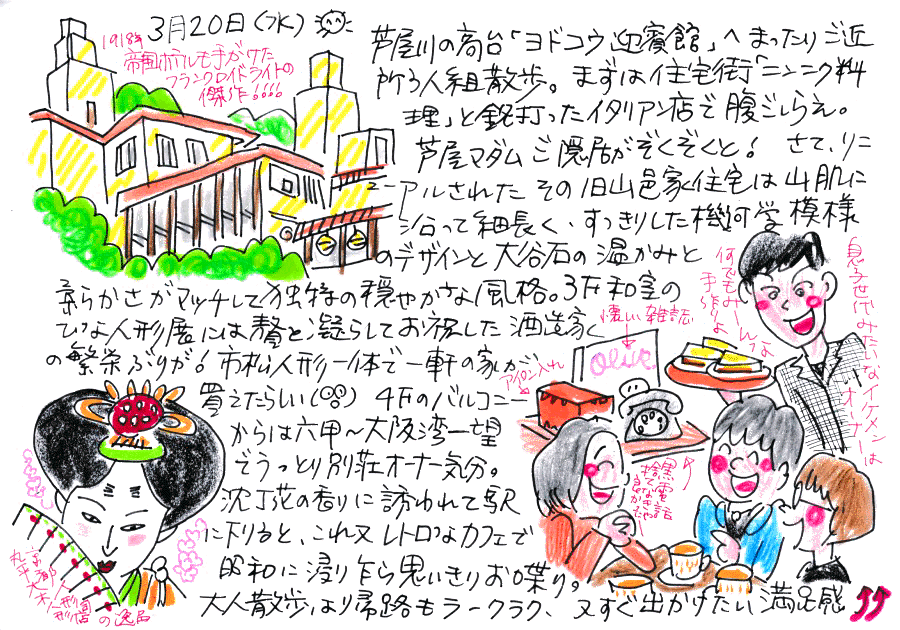 3月20日(水)
1918年
帝国ホテルも手がけた
フランクロイドライトの
傑作!!!!
芦屋川の高台「ヨドコウ迎賓館」へまったりご近
所3人組散歩。まずは住宅街「ニンニク料
理」と銘打ったイタリアン店で腹ごしらえ。
芦屋マダムご隠居がぞくぞくと! さて、リニ
ューアルされたその旧山邑家住宅は山肌に
沿って細長く、すっきりした幾何学模様
のデザインと大谷石の温かみと
柔らかさがマッチして独特の穏やかな風格。3F和室の
ひな人形展には贅を凝らしてお祝した酒造家
の繁栄ぶりが! 市松人形一体で一軒の家が
買えたらしい 4Fのバルコニー
からは六甲〜大阪湾一望
でうっとり別荘オーナー気分。
沈丁花の香りに誘われて駅
に下りると、これ又レトロなカフェで
昭和に浸り乍ら思いきりお喋り。
大人散歩、より帰路もラークラク、又すぐ出かけたい満足感
懐しい雑誌
Olive
アイロン入れ
黒電話
何でもみーんな
手作りよ
息子世代みたいなイケメン
オーナーは
京都
丸平大木人形店
の逸品